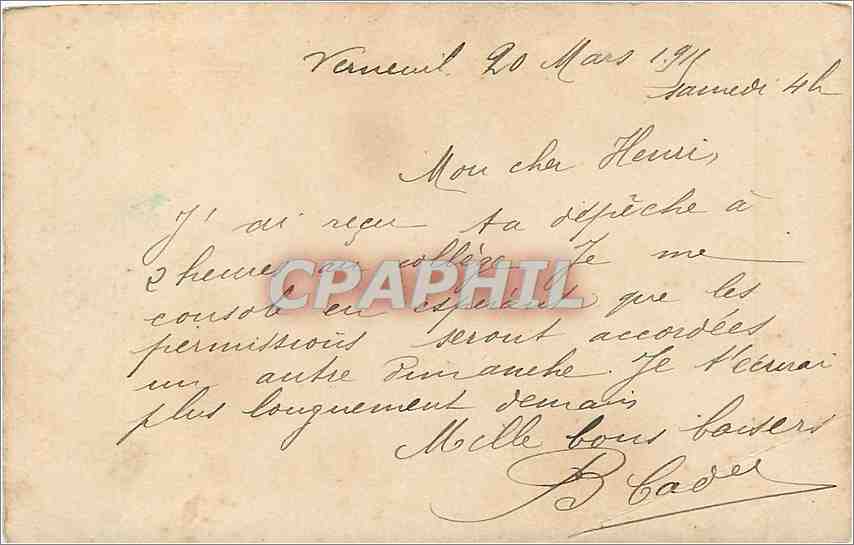 Verneuil. 20 Mars 1.911
samedi 4h
Mon cher Henri,
J'ai reçu ta dépêche à
2 heures au collège. Je me
console en espérant que les
permissions seront accordées
un autre Dimanche. Je t'écrirai
plus longuement demain
Mille bons baisers
B
CPAPHIL